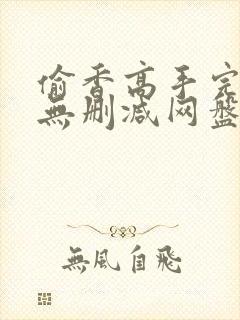 偷香高手完
無删减网盘
無風自飛